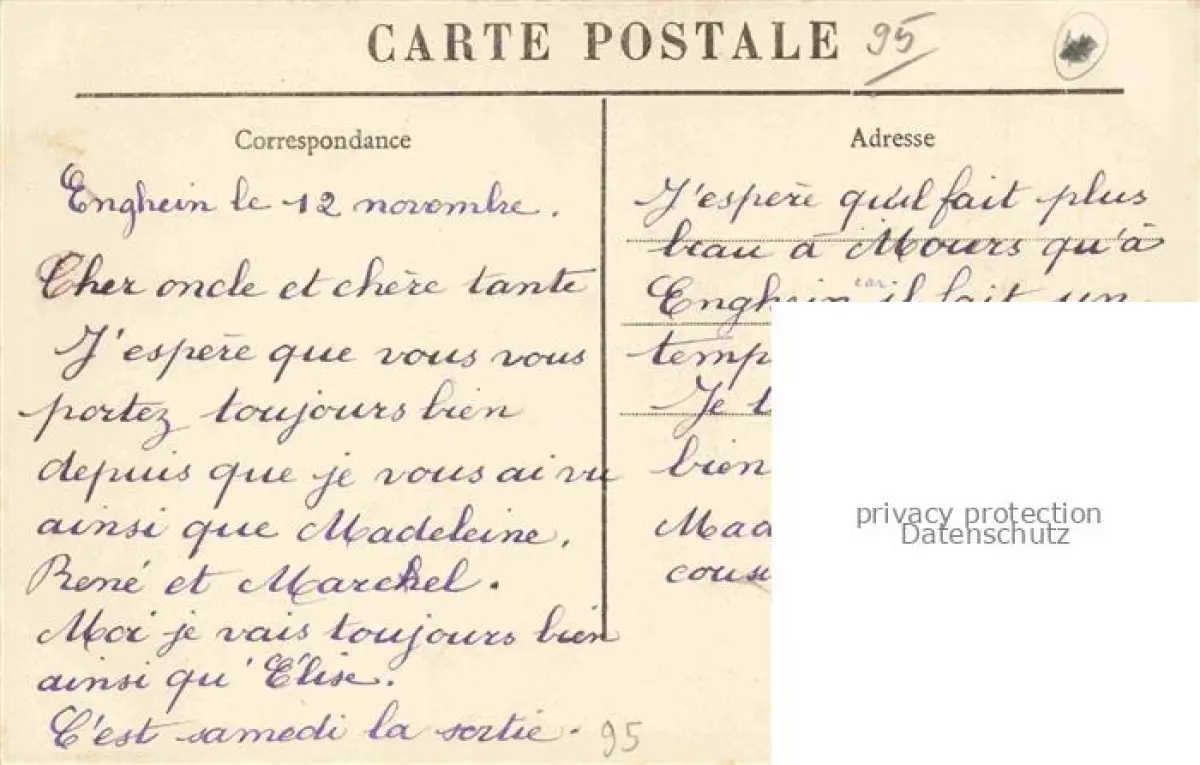 CARTE POSTALE 95
Correspondance
Enghein le 12 novembre.
Cher oncle et chère tante
J'espère que vous vous
portez toujours bien
depuis que je vous ai vu
ainsi que Madeleine,
René et Marckel.
Moi je vais toujours bien
ainsi qu'Élise.
C'est samedi la sortie.
95
Adresse
J'espère qu'il fait plus
beau à Mours qu'à
Enghein car il fait un
temp
Je
bien
Mad
cous
privacy protection
Datenschutz